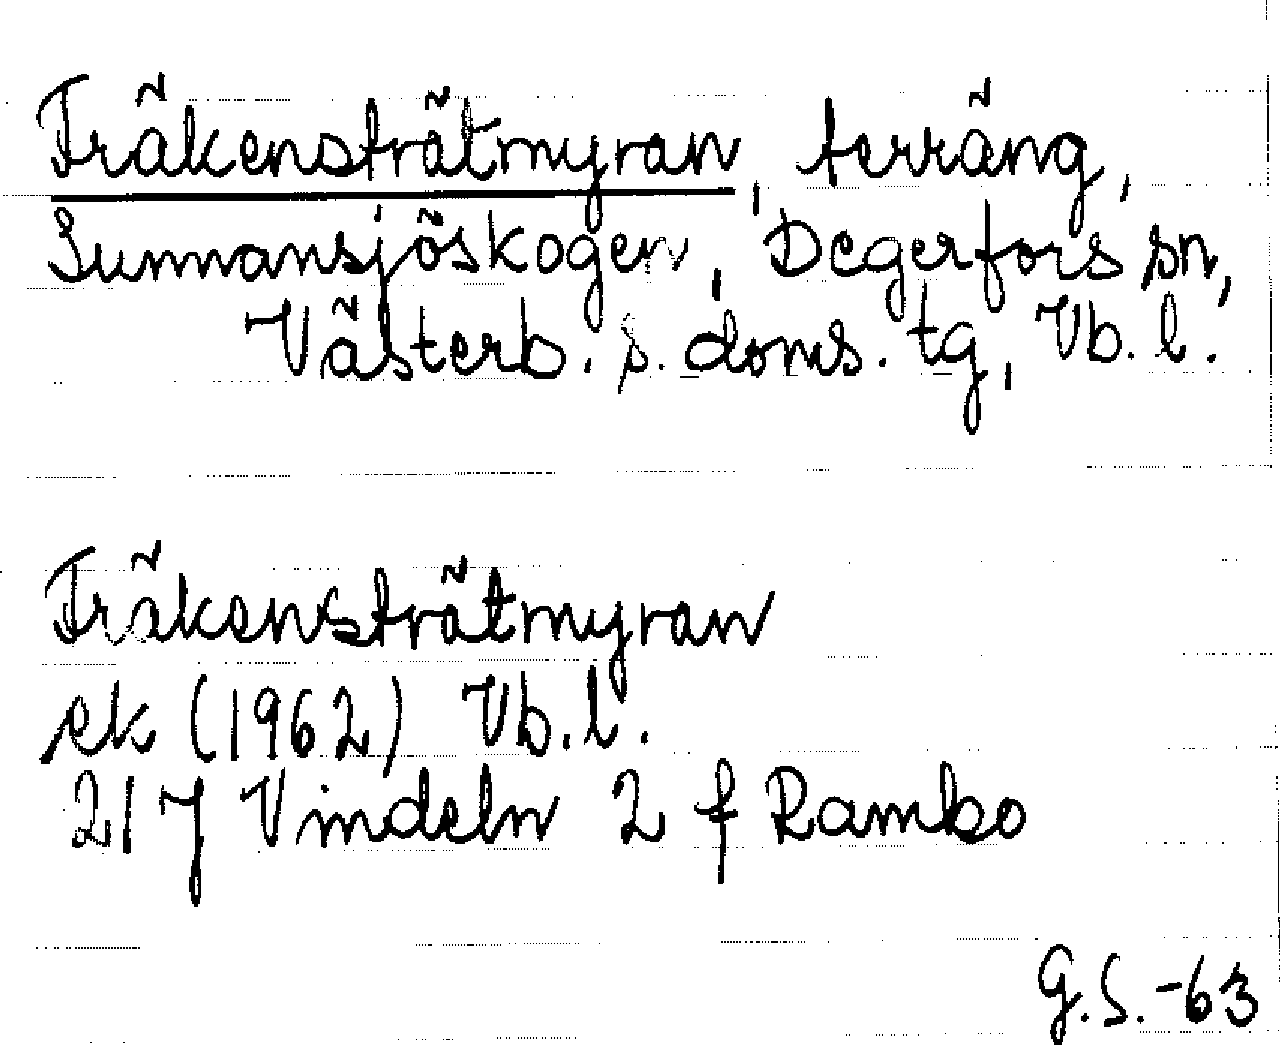 Fräkensträtmyran, terräng,
Sunnansjöskogen, Degerfors sn,
Västerb. s. doms. tg, Vb. l.
Fräkensträtmyran
ek (1962) Vb. l.
21 J Vindeln 2 f Rambo
G.S. -63